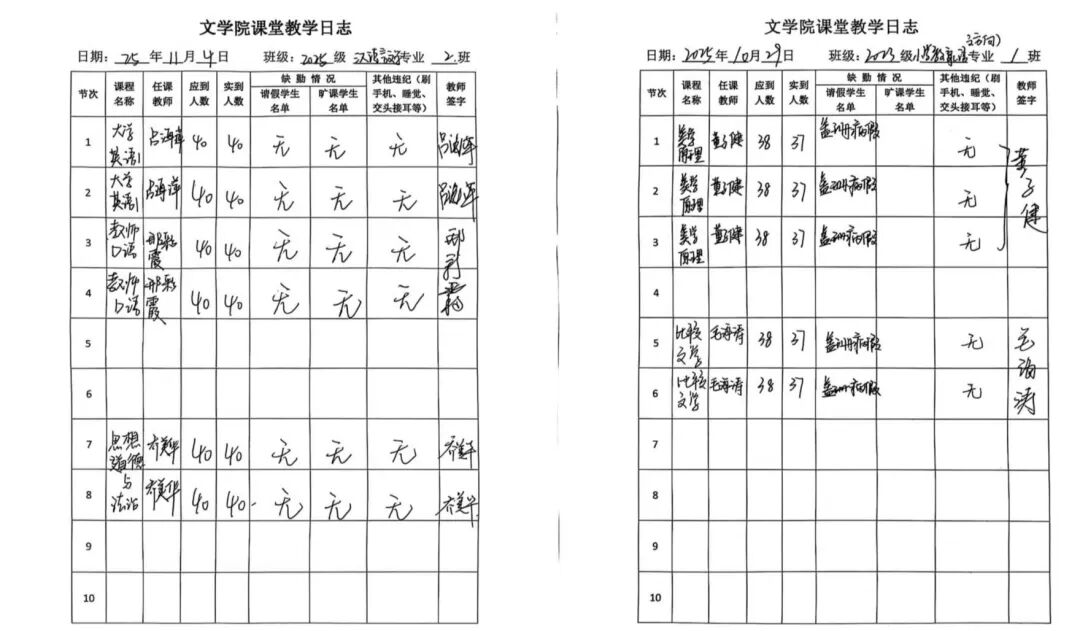 文学院课堂教学日志
日期: 25 年 11 月 4 日 班级: 2025 级 汉语言文学专业 2 班
节次 课程名称 任课教师 应到人数 实到人数 缺勤情况 请假学生名单 旷课学生名单 其他违纪(刷手机、睡觉、交头接耳等) 教师签字
1 大学英语1 40 40 无 无 无
2 大学英语1 40 40 无 无 无
3 教师口语 邢彩霞 40 40 无 无 无 邢彩霞
4 教师口语 邢彩霞 40 40 无 无 无
5
6
7 思想道德与法治 乔美华 40 40 无 无 无 乔美华
8 乔美华 40 40 无 无 无 乔美华
9
10
文学院课堂教学日志
日期: 2025 年 10 月 29 日 班级: 2023 级 专业 1 班
节次 课程名称 任课教师 应到人数 实到人数 缺勤情况 请假学生名单 旷课学生名单 其他违纪(刷手机、睡觉、交头接耳等) 教师签字
1 美学原理 黄子健 38 37 孟珊病假 无 黄子健
2 美学原理 黄子健 38 37 孟珊病假 无
3 美学原理 黄子健 38 37 孟珊病假 无
4
5 比较文学 毛海涛 38 37 孟珊病假 无 毛海涛
6 比较文学 毛海涛 38 37 孟珊病假 无
7
8
9
10